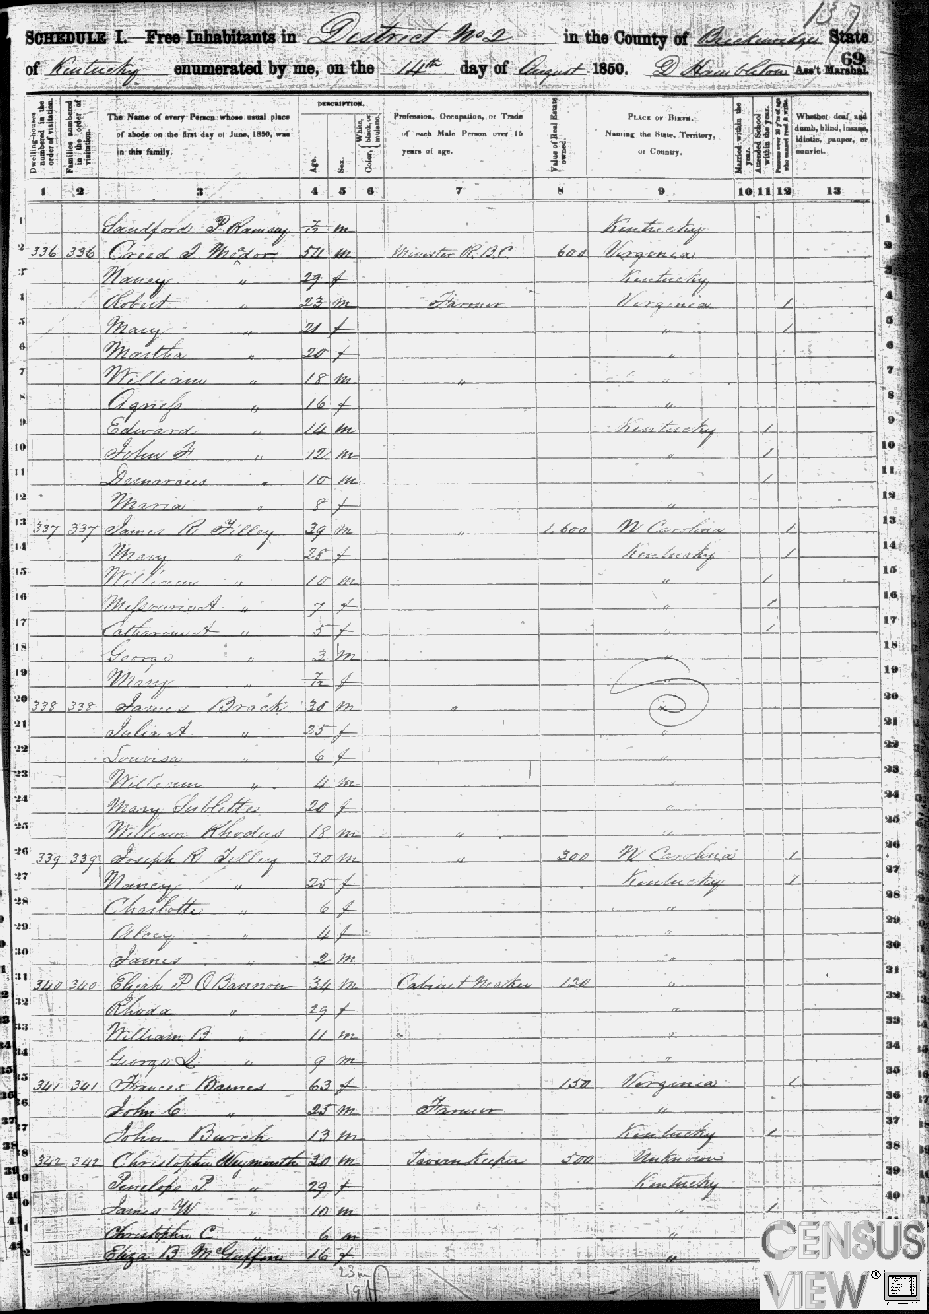 137
SCHEDULE I.—Free Inhabitants in District No 2 in the County of Breckenridge State
of Kentucky enumerated by me, on the 14th day of August 1850. D Hambleton Ass't Marshal.
69
Dwelling-houses numbered in the order of visitation.
Families numbered in the order of visitation.
The Name of every Person whose usual place of abode on the first day of June, 1850, was in this family.
DESCRIPTION.
Age.
Sex.
Color, White, black, or mulatto.
Profession, Occupation, or Trade of each Male Person over 15 years of age.
Value of Real Estate owned.
PLACE OF BIRTH. Naming the State, Territory, or Country.
Married within the year.
Attended School within the year.
Persons over 20 y'rs of age who cannot read & write.
Whether deaf, and dumb, blind, insane, idiotic, pauper, or convict.
1 2 3 4 5 6 7 8 9 10 11 12 13
1 Sandford P. Ramsay m Kentucky 1
2 336 336 Creed T Meador 54 m Minister R.B.C 600 Virginia 2
3 Nancy " 29 f Kentucky 3
4 Robert " 23 m Farmer Virginia 1 4
5 Mary " 21 f " 1 5
6 Martha " 20 f " 6
7 William " 18 m " " 7
8 Agness " 16 f " 8
9 Edward " 14 m Kentucky 1 9
10 John F " 12 m " 1 10
11 " 10 m " 1 11
12 Maria " 8 f " 12
13 337 337 James R. Tilley 39 m " 1,600 N Carolina 1 13
14 Mary " 28 f Kentucky 1 14
15 William " 10 m " 1 15
16 Missouri A " 7 f " 1 16
17 Catharine A " 5 f " 1 17
18 George " 3 m " 18
19 Mary " f " 19
20 338 338 James Brack 30 m " " 20
21 Julia A " 25 f " 21
22 Louisa " 6 f " 22
23 William " 4 m " 23
24 Mary Sublette 20 f " 24
25 William Rhodus 18 m " " 25
26 339 339 Joseph R Tilley 30 m " 300 N Carolina 1 26
27 Nancy " 25 f Kentucky 1 27
28 Charlotte " 6 f " 28
29 " 4 f " 29
30 James " 2 m " 30
31 340 340 Elijah P OBannon 34 m Cabinet Maker 120 " 31
32 Rhoda " 29 f " 32
33 William B " 11 m " 33
34 George L " 9 m " 34
35 341 341 Frances Barnes 63 f 150 Virginia 1 35
36 John C " 25 m Farmer " 36
37 John Burch 13 m Kentucky 1 37
38 342 342 Christopher Weymouth 30 m Tavern Keeper 500 Unknown 38
39 Penelope P " 29 f Kentucky 39
40 James W " 10 m " 1 40
41 Christopher C " 6 m " 41
42 Eliza B McGuffin 16 f " 42
23 m
19 f
CENSUS
VIEW®